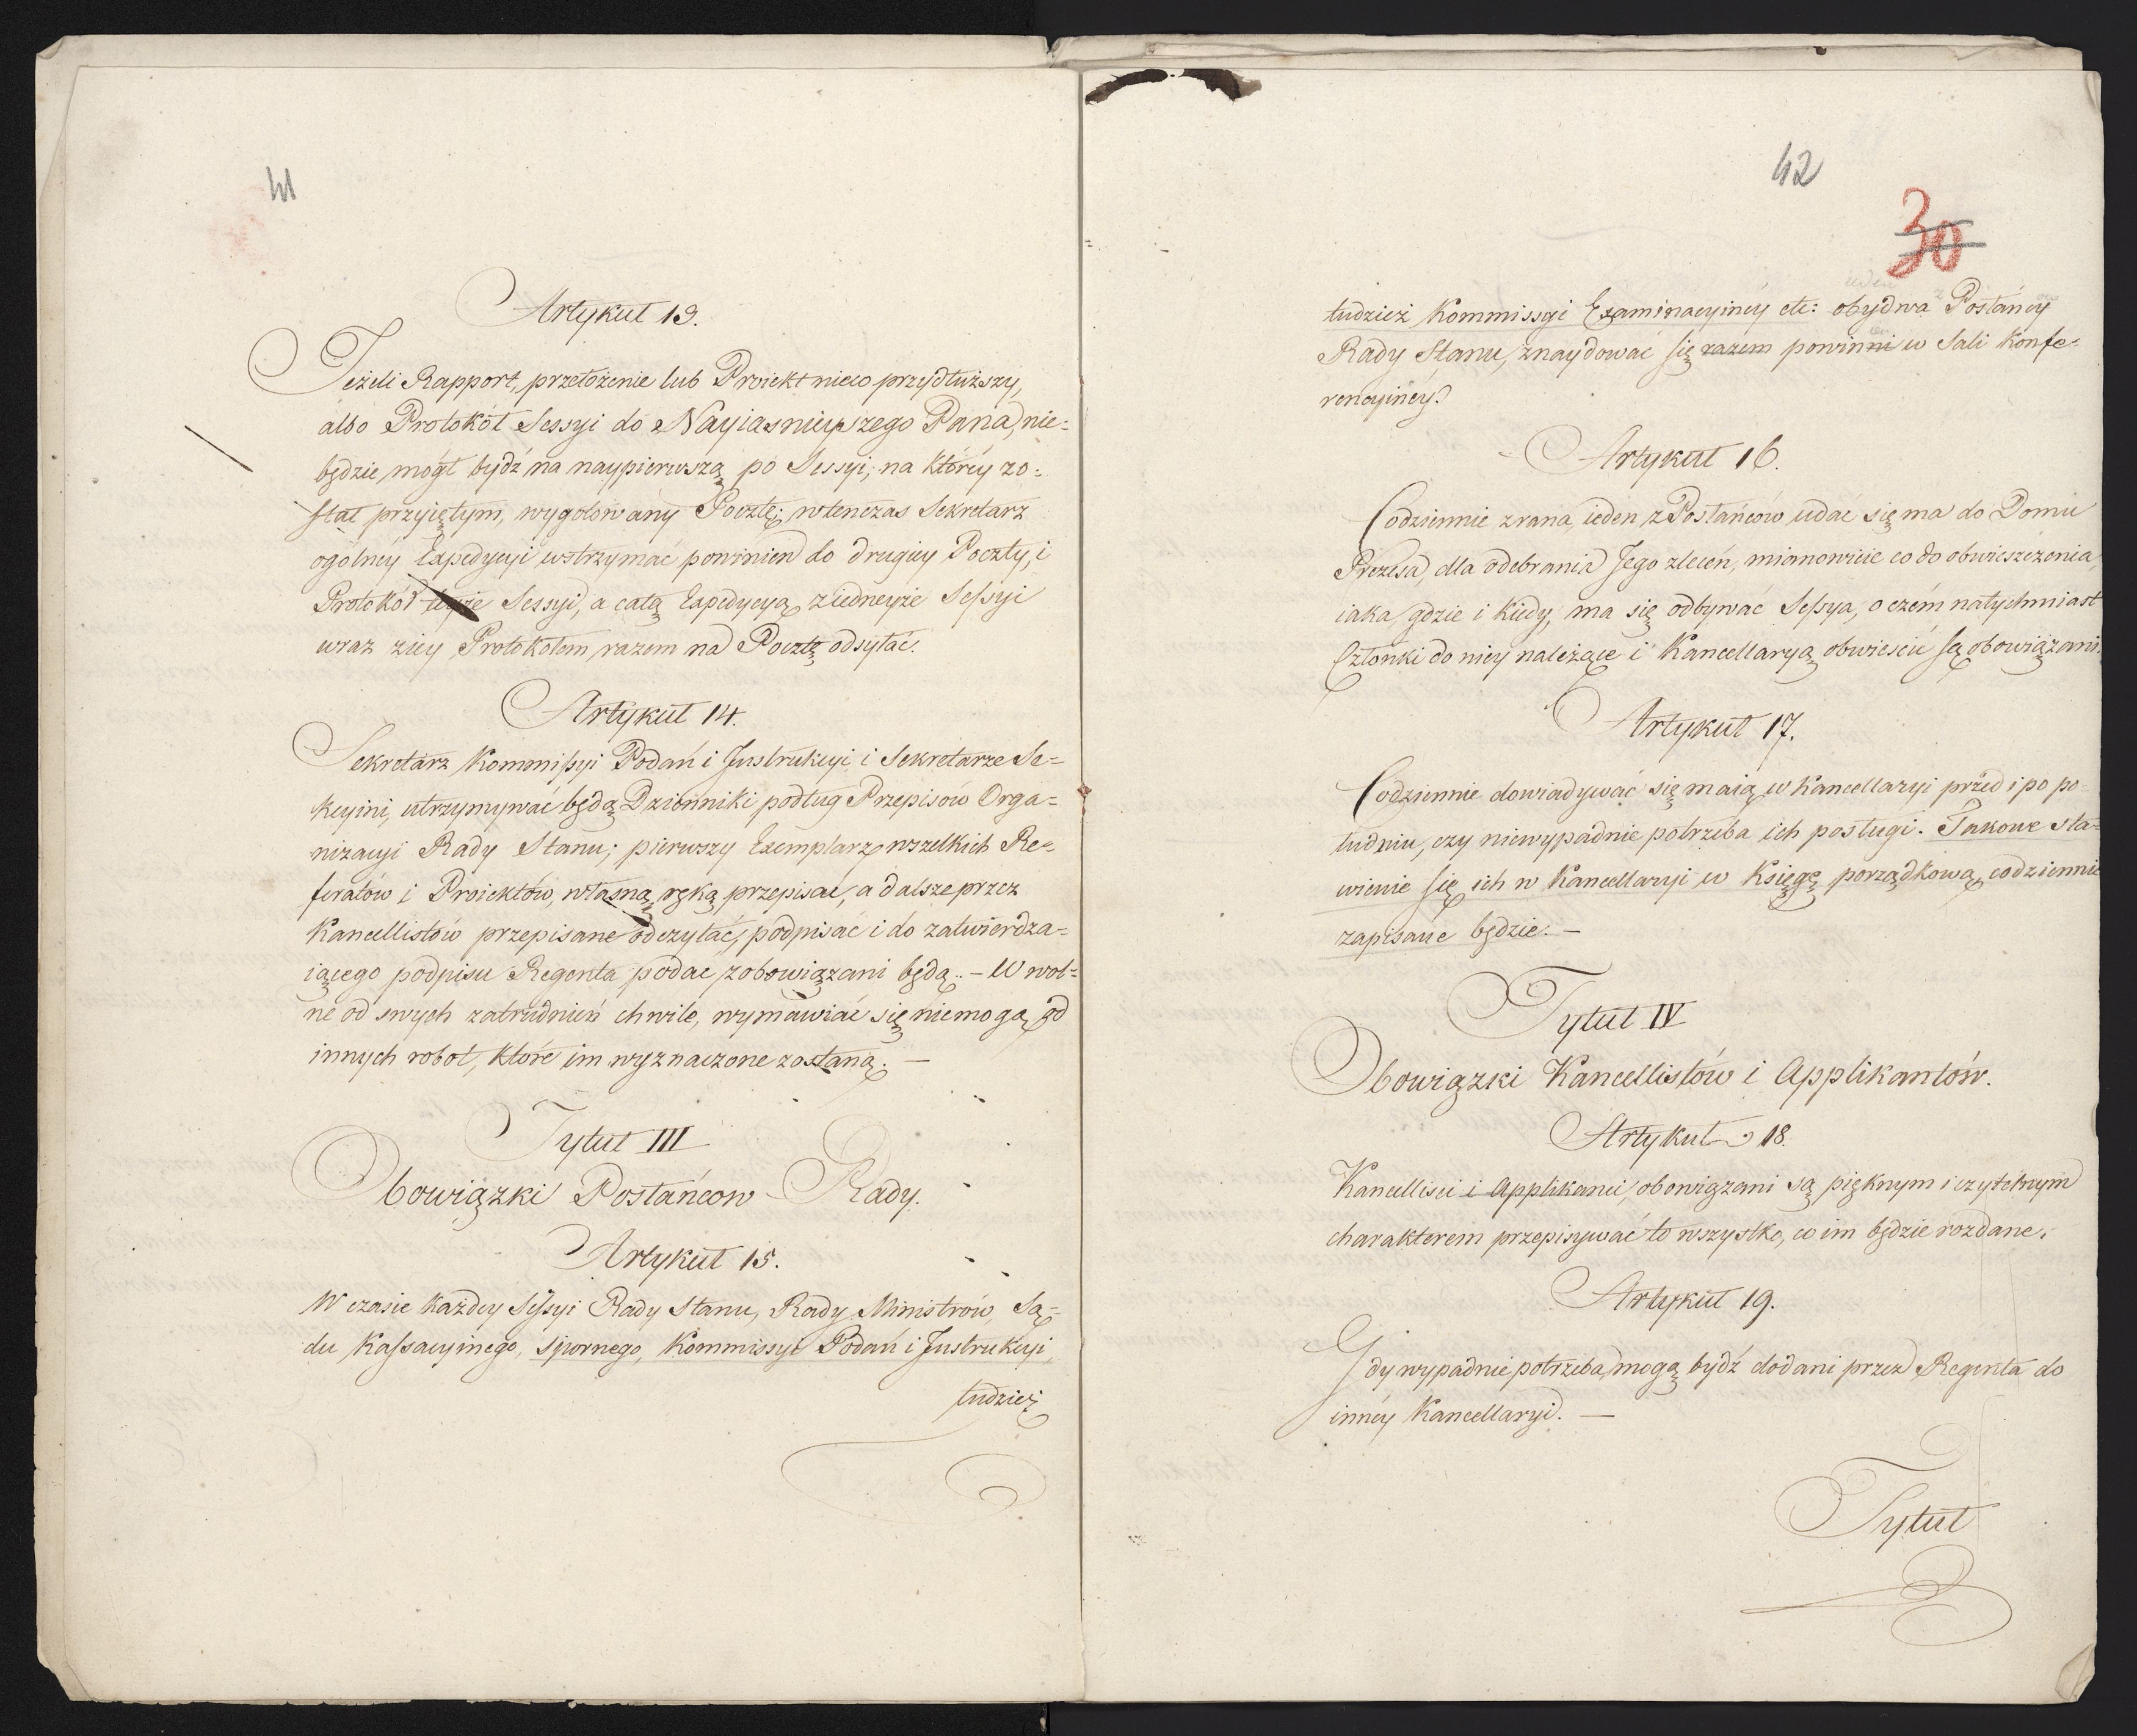 41
Artykuł 13.
Jeżeli Rapport, przełożenie lub Proiekt nieco przydłuższy,
albo Protokół Sessyi do Nayiasnieyszego Pana, nie-
będzie mógł bydź na naypierwszą po Sessyi, na któréy zo-
stał przyiętym, wygotowany Pocztę; wtenczas Sekretarz
ogólnéy Expedycyi wstrzymać powinien do drugiey Poczty, i
Protokół teyże Sessyi, a całą Expedycyą z iedneyże Sessyi
wraz z iey Protokołem razem na Pocztę odsyłać.
Artykuł 14.
Sekretarz Kommissyi Podań i Instrukcyi i Sekretarze Se-
kcyini, utrzymywać będą Dzienniki podług Przepisów Orga-
nizacyi Rady Stanu; pierwszy Exemplarz wszelkich Re-
feratów i Proiektów, własną ręką przepisać, a dalsze przez
Kancellistów przepisane odczytać, podpisać i do zatwierdza-
iącego podpisu Regenta podać zobowiązani będą. – W wol-
ne od swych zatrudnień chwile, wymawiać się niemogą od
innych robot, które im wyznaczone zostaną. –
Tytuł III
Obowiązki Posłańcow Rady.
Artykuł 15.
W czasie każdey Sessyi Rady Stanu, Rady Ministrów, Są-
du Kassacyinego, Spornego, Kommissyi Podań i Instrukcyi,
tudzież
42
30
tudzież Kommissyi Examinacyinéy etc: obydwa Posłańcy
Rady Stanu, znaydować się razem powinni w Sali Konfe-
rencyinéy.
Artykuł 16.
Codziennie zrana ieden z Posłańców udać się ma do Domu
Prezesa, dla odebrania Jego zleceń, mianowicie co do obwieszczenia,
iaka, gdzie i kiedy, ma się odbywać Sessya, o czém natychmiast
Członki do niey należące i Kancellaryą obwieścić są obowiązani.
Artykuł 17.
Codziennie dowiadywać się maią w Kancellaryi przed i po po-
łudniu, czy niewypadnie potrzeba ich posługi. Takowe sta-
wienie się ich w Kancellaryi w Księgę porządkową codziennie
zapisane będzie. –
Tytuł IV
Obowiązki Kancellistów i Applikantów.
Artykuł 18.
Kancelliści i Applikanci, obowiązani są pięknym i czytelnym
charakterem przepisywać to wszystko, co im będzie rozdane.
Artykuł 19.
Gdy wypadnie potrzeba, mogą bydź dodani przez Regenta do
innéy Kancellaryi. –
Tytuł